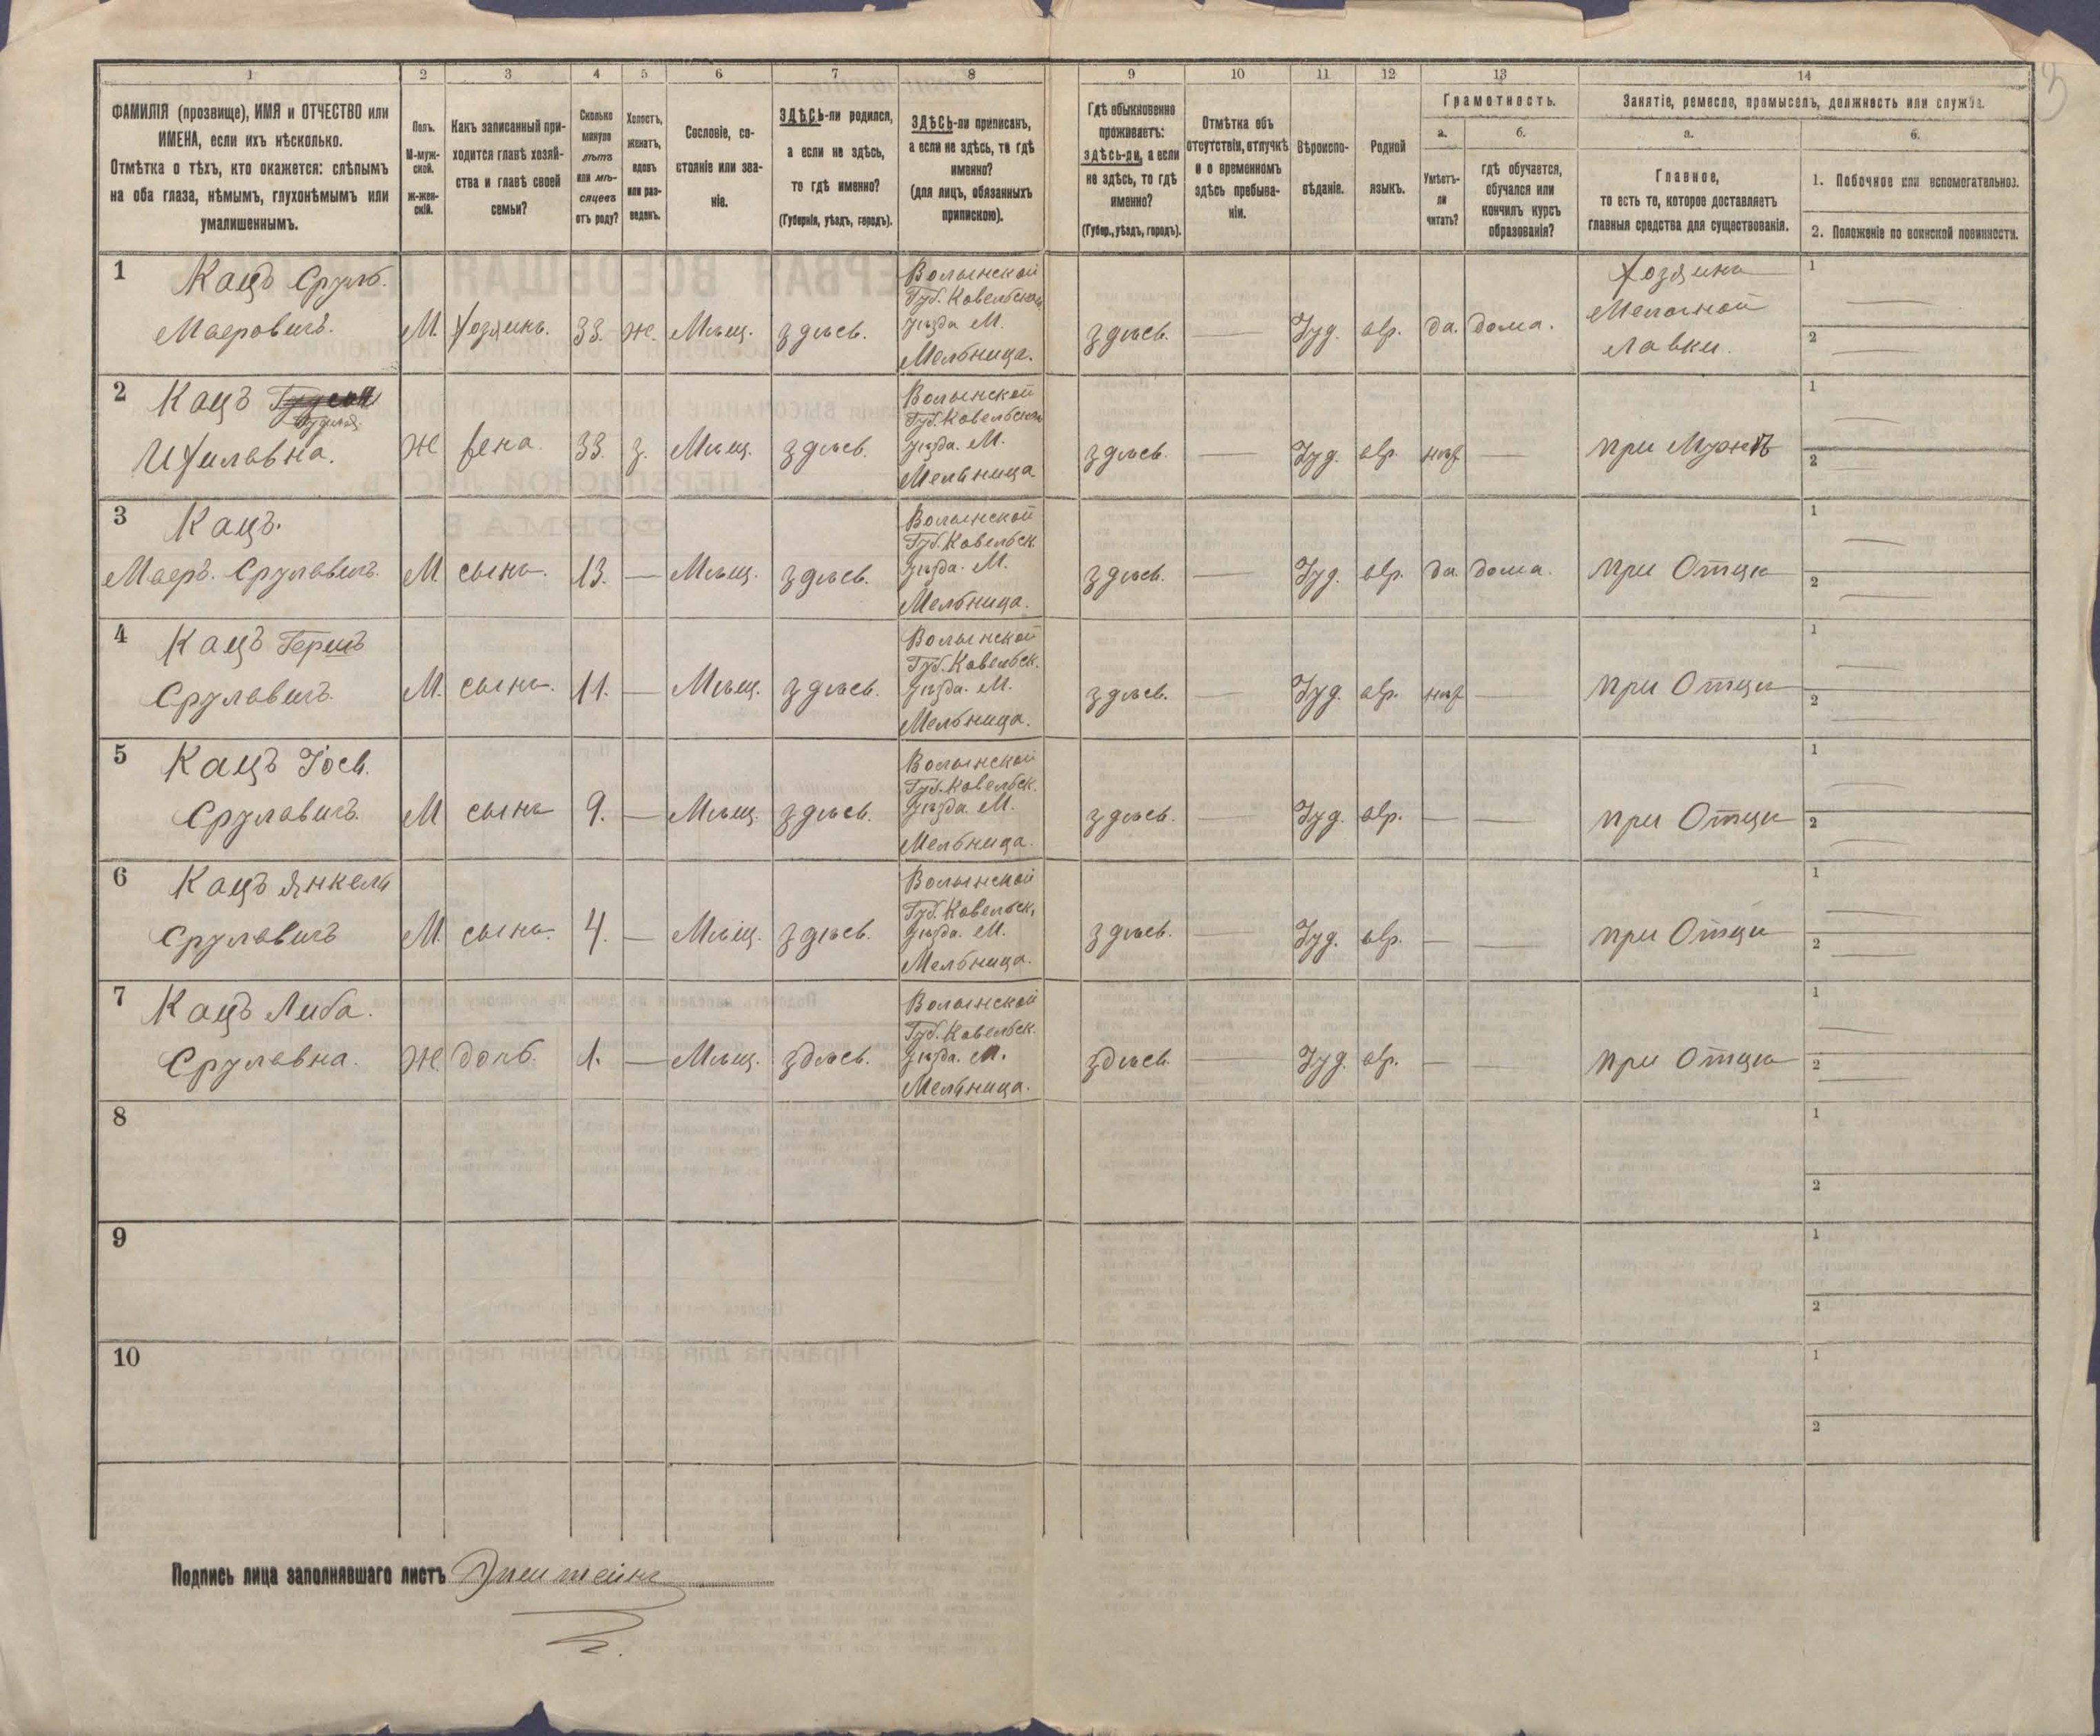 1 2 3 4 5 6 7 8 9 10 11 12 13 14
ФАМИЛІЯ (прозвище), ИМЯ и ОТЧЕСТВО или
ИМЕНА, если ихъ нѣсколько.
Отмѣтка о тѣхъ, кто окажется: слѣпымъ
на оба глаза, нѣмымъ, глухонѣмымъ или
умалишеннымъ.
Полъ.
М-муж-
ской.
Ж-жен-
скій.
Какъ записанный при-
ходится главѣ хозяй-
ства и главѣ своей
семьи?
Сколько
минуло
лѣтъ
или мѣ-
сяцевъ
отъ роду?
Холостъ,
женатъ,
вдовъ
или раз-
веденъ.
Сословіе, со-
стояніе или зва-
ніе.
ЗДѢСЬ-ли родился,
а если не здѣсь,
то гдѣ именно?
(Губернія, уѣздъ, городъ).
ЗДѢСЬ-ли приписанъ,
а если не здѣсь, то гдѣ
именно?
(для лицъ, обязанныхъ
припискою).
Гдѣ обыкновенно
проживаетъ:
здѣсь-ли, а если
не здѣсь, то гдѣ
именно?
(Губер., уѣздъ, городъ).
Отмѣтка объ
отсутствіи, отлучкѣ
и о временномъ
здѣсь пребыва-
ніи.
Вѣроиспо-
вѣданіе.
Родной
языкъ.
Грамотность.
а.
Умѣетъ-
ли
читать?
б.
гдѣ обучается,
обучался или
кончилъ курсъ
образованія?
Занятіе, ремесло, промыселъ, должность или служба.
а.
Главное,
то есть то, которое доставляетъ
главныя средства для существованія.
б.
1. Побочное или вспомогательное.
2. Положеніе по воинской повинности.
1
Кацъ Сруль.
Маеровичъ.
М.
Хозяинъ.
33.
ж.
Мѣщ.
здѣсь.
Волынской
Губ. Ковельскаго
Уѣзда М.
Мельница.
здѣсь.
—
Іуд.
евр.
да.
дома.
Хозяинъ
Мелочной
лавки.
1 —
2 —
2
Кацъ
Ихилавна.
Ж
жена.
33.
з.
Мѣщ.
здѣсь.
Волынской
Губ. Ковельскаго
Уѣзда. М.
Мельница.
здѣсь.
—
Іуд.
евр.
нѣт
—
при Мужѣ
1 —
2 —
3
Кацъ.
Маеръ. Срулавичъ.
М.
сынъ.
13.
—
Мѣщ.
здѣсь.
Волынской
Губ. Ковельск.
Уѣзда. М.
Мельница.
здѣсь.
—
Іуд.
евр.
да.
дома.
при Отцѣ
1 —
2 —
4
Кацъ Гершъ
Срулавичъ.
М.
сынъ.
11.
—
Мѣщ.
здѣсь.
Волынской
Губ. Ковельск.
Уѣзда. М.
Мельница.
здѣсь.
—
Іуд.
евр.
нѣт
—
при Отцѣ
1 —
2 —
5
Кацъ Іось.
Срулавичъ.
М
сынъ
9.
—
Мѣщ.
здѣсь.
Волынской
Губ. Ковельск.
Уѣзда М.
Мельница.
здѣсь.
—
Іуд.
евр.
—
—
при Отцѣ
1 —
2 —
6
Кацъ Янкель
Срулавичъ
М.
сынъ.
4.
—
Мѣщ.
здѣсь.
Волынской
Губ. Ковельск.
Уѣзда. М.
Мельница.
здѣсь.
—
Іуд.
евр.
—
—
при Отцѣ
1 —
2 —
7
Кацъ Либа.
Срулавна.
Ж.
дочь.
1.
—
Мѣщ.
здѣсь.
Волынской
Губ. Ковельск.
Уѣзда. М.
Мельница.
здѣсь.
—
Іуд.
евр.
—
—
при Отцѣ
1 —
2 —
8
1
2
9
1
2
10
1
2
Подпись лица заполнявшаго листъ